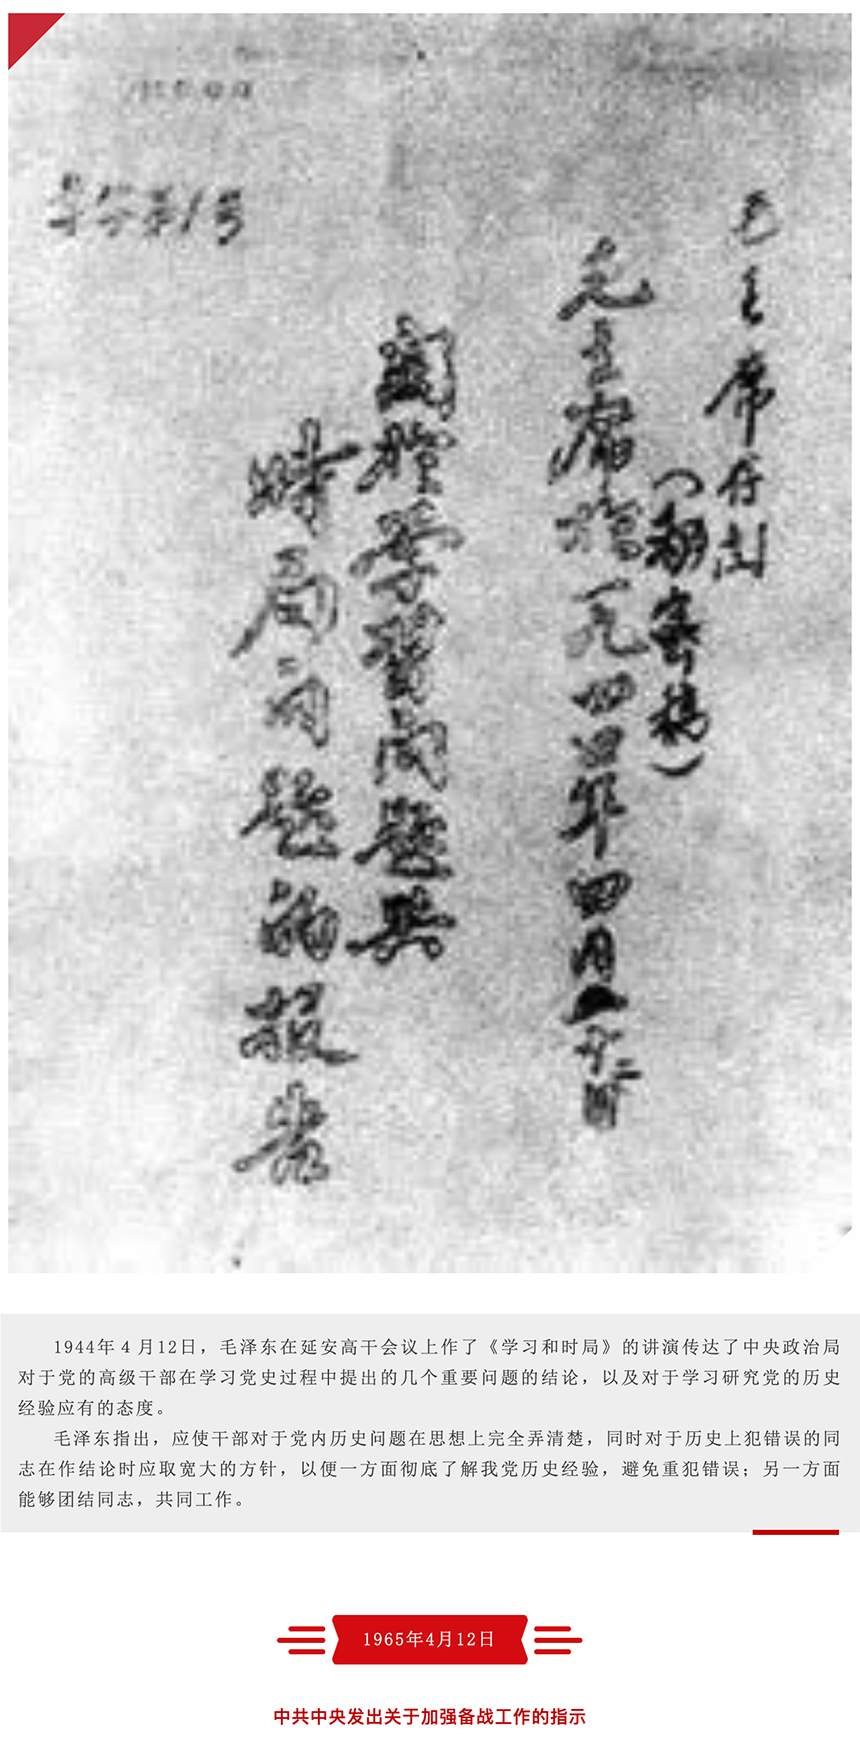 毛主席
(初稿)
毛主席 一九四四年四月
关于学习问题与
时局问题的报告
第1号
1944年4月12日，毛泽东在延安高干会议上作了《学习和时局》的讲演传达了中央政治局
对于党的高级干部在学习党史过程中提出的几个重要问题的结论，以及对于学习研究党的历史
经验应有的态度。
毛泽东指出，应使干部对于党内历史问题在思想上完全弄清楚，同时对于历史上犯错误的同
志在作结论时应取宽大的方针，以便一方面彻底了解我党历史经验，避免重犯错误；另一方面
能够团结同志，共同工作。
1965年4月12日
中共中央发出关于加强备战工作的指示